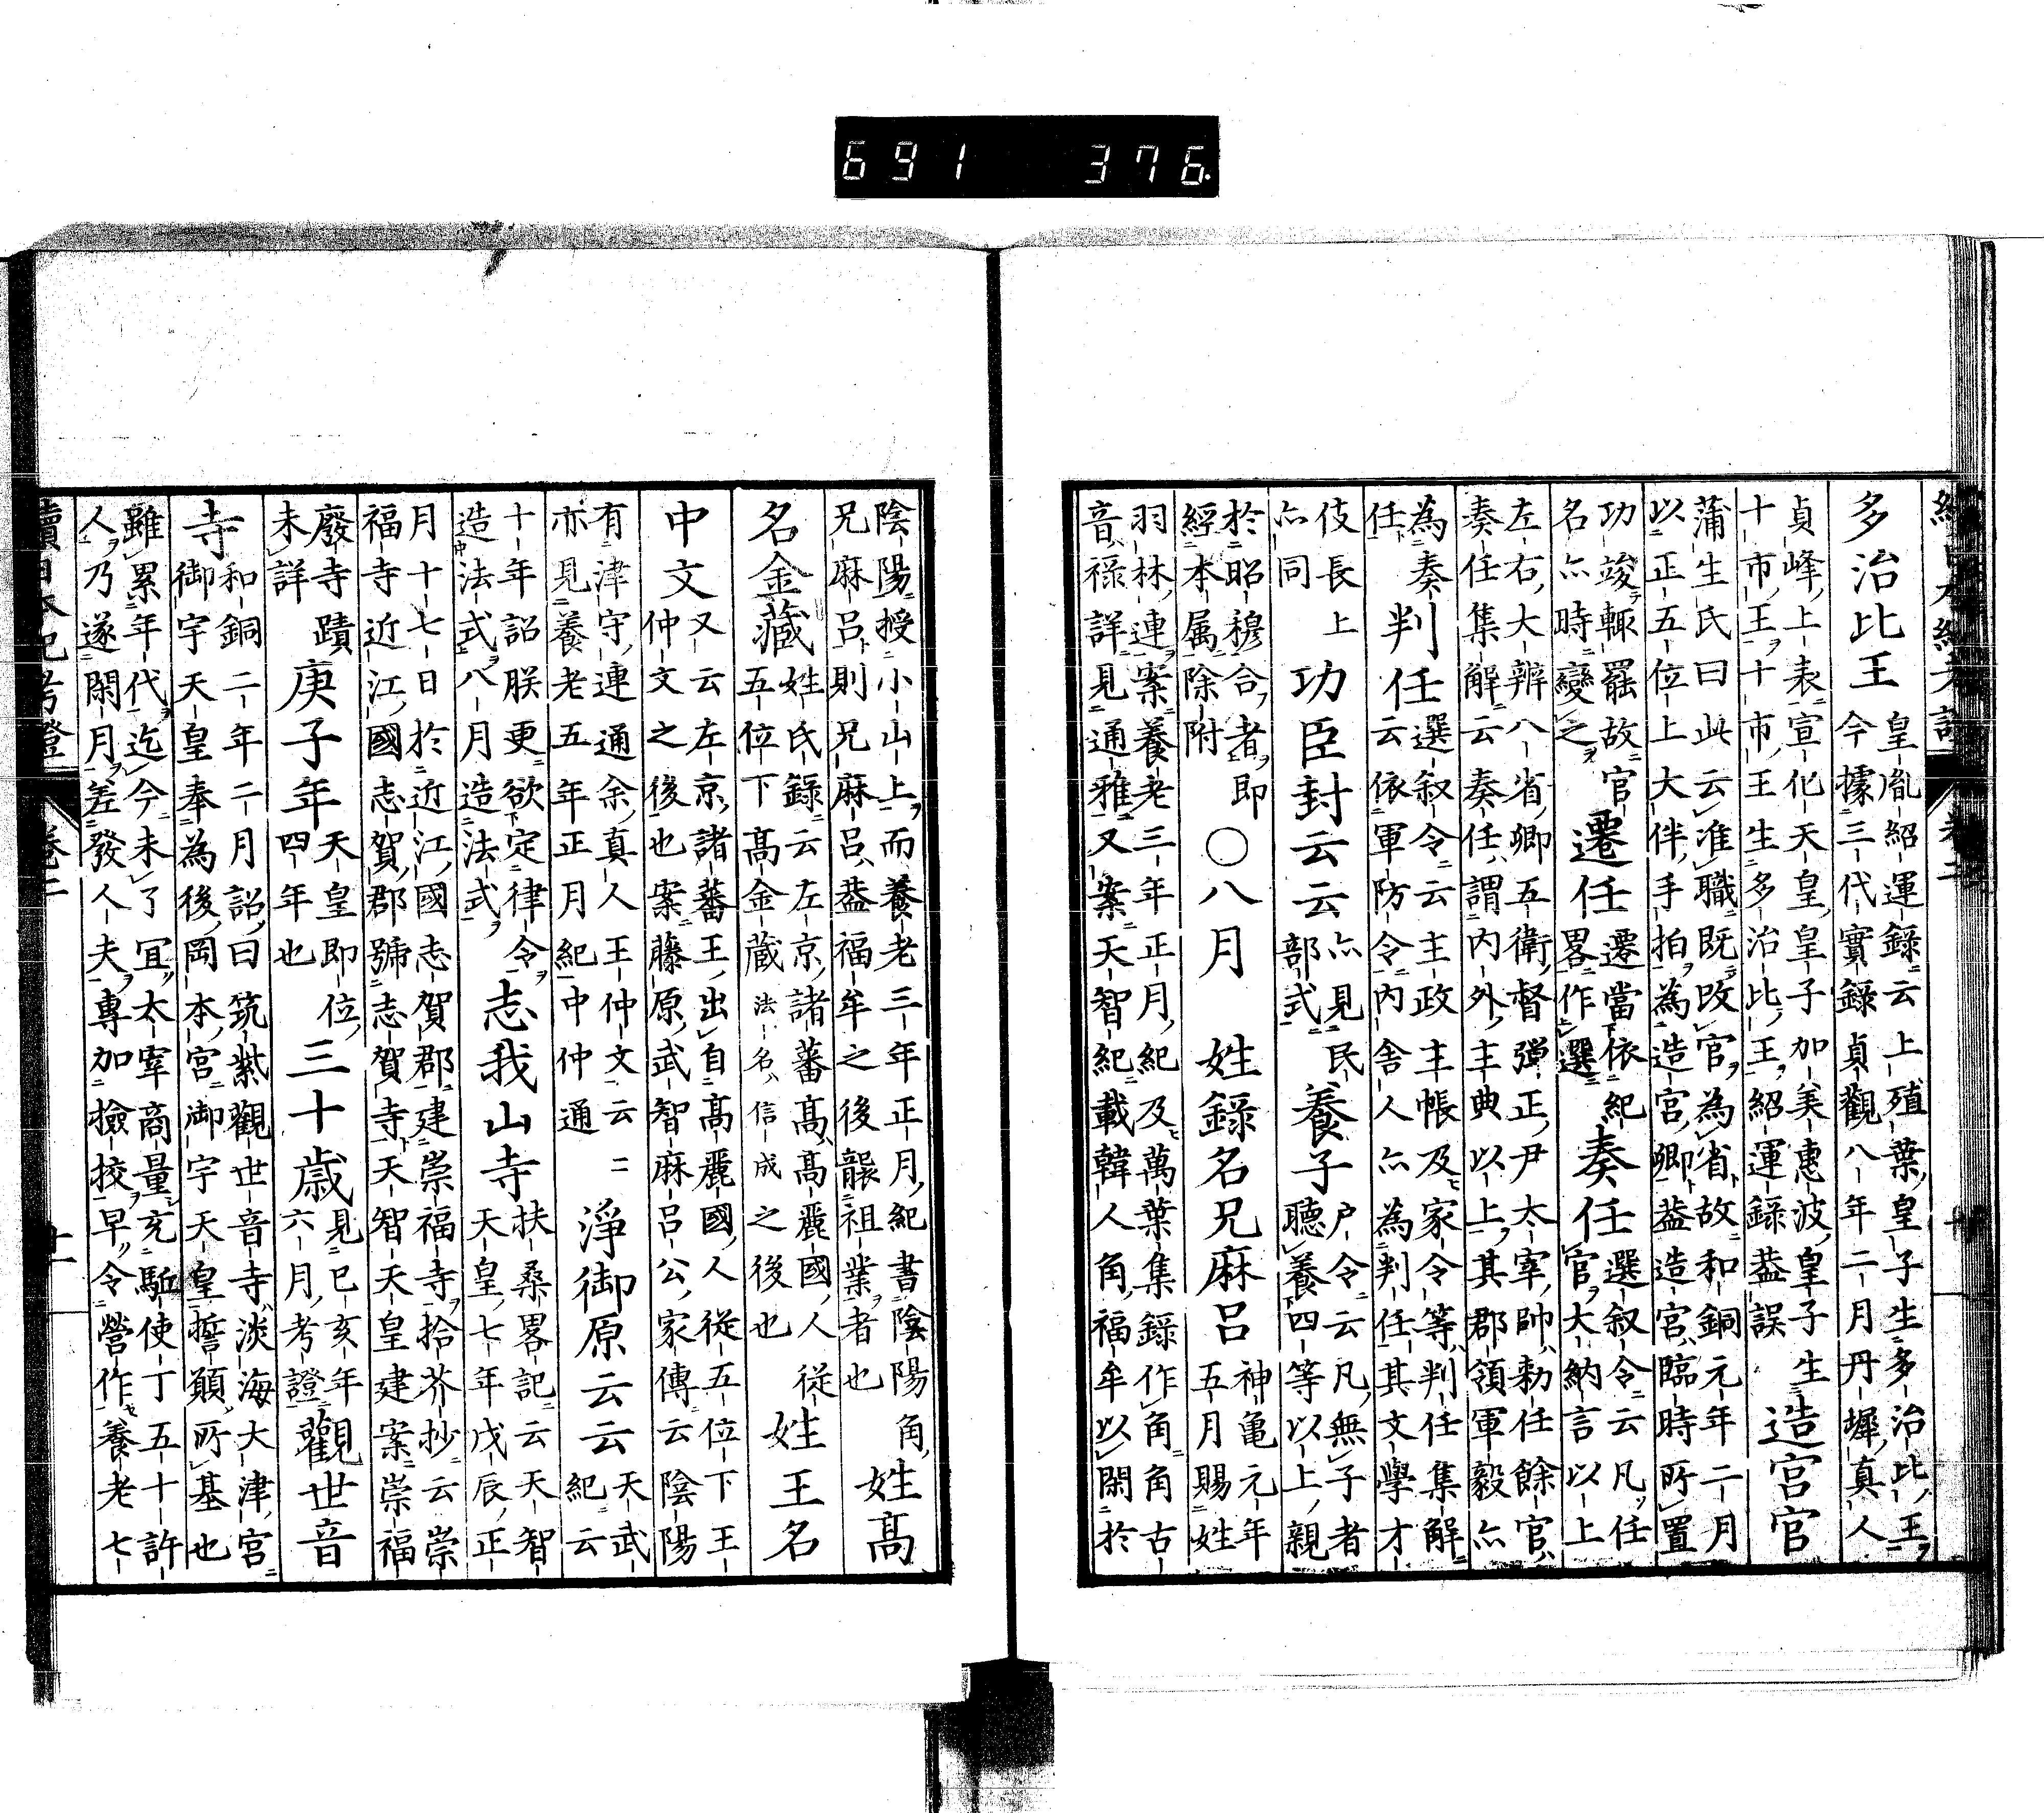 691 376.
多治比王
皇胤紹運録云上殖葉皇子生多治比王
今據三代實録貞觀八年二月丹墀真人
貞峰上表宣化天皇皇子加美惠波皇子生
十市王十市王生多治比王紹運録蓋誤
造宮官
蒲生氏曰此云准職既改官為省故和銅元年二月
以正五位上大伴手拍為造宮卿蓋造宮臨時所置
功竣輙罷故官
名亦時變之
遷任
遷當依紀
畧作選
奏任
選叙令云凡任
官大納言以上
左右大辨八省卿五衛督彈正尹太宰帥勅任餘官
奏任集解云奏任謂内外主典以上其郡領軍毅亦
為奏
任
判任
選叙令云主政主帳及家令等判任集解
云依軍防令内舎人亦為判任其文學才
伎長上
亦同
功臣封云云
亦見民
部式
養子
戸令云凡無子者
聴養四等以上親
於昭穆合者即
經本属除附
○八月
姓録名兄麻呂
神亀元年
五月賜姓
羽林連案養老三年正月紀及萬葉集録作角角古
音禄詳見通雅又案天智紀載韓人角福牟以閑於
陰陽授小山上而養老三年正月紀書陰陽角
兄麻呂則兄麻呂蓋福牟之後襲祖業者也
姓高
名金藏
姓氏録云左京諸蕃高高麗國人從
五位下高金藏法名信成之後也
姓王名
中文
又云左京諸蕃王出自高麗國人從五位下王
仲文之後也案藤原武智麻呂公家傳云陰陽
有津守連通余真人王仲文云二
亦見養老五年正月紀中仲通
淨御原云云
天武
紀云
十年詔朕更欲定律令
造法式八月造法式
志我山寺
扶桑畧記云天智
天皇七年戊辰正
月十七日於近江國志賀郡建崇福寺拾芥抄云崇
福寺近江國志賀郡號志賀寺天智天皇建案崇福
廢寺蹟
未詳
庚子年
天皇即位
四年也
三十歳
見己亥年
六月考證
觀世音
寺
和銅二年二月詔曰筑紫觀世音寺淡海大津宮
御宇天皇奉為後岡本宮御宇天皇誓願所基也
雖累年代迄今未了宜太宰商量充駈使丁五十許
人乃遂閑月差發人夫專加撿挍早令營作養老七
續日本紀考證
卷二
十一